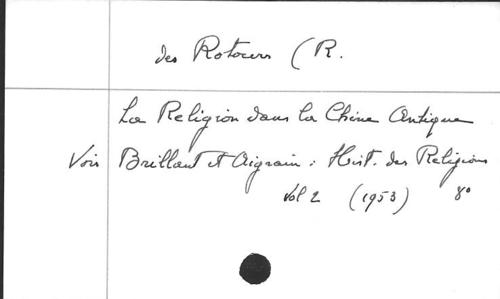 des Rotours (R.
La Religion dans la Chine Antique
Voir Brillant et Aigrain : Hist. des Religions
Vol 2 (1953) 8°